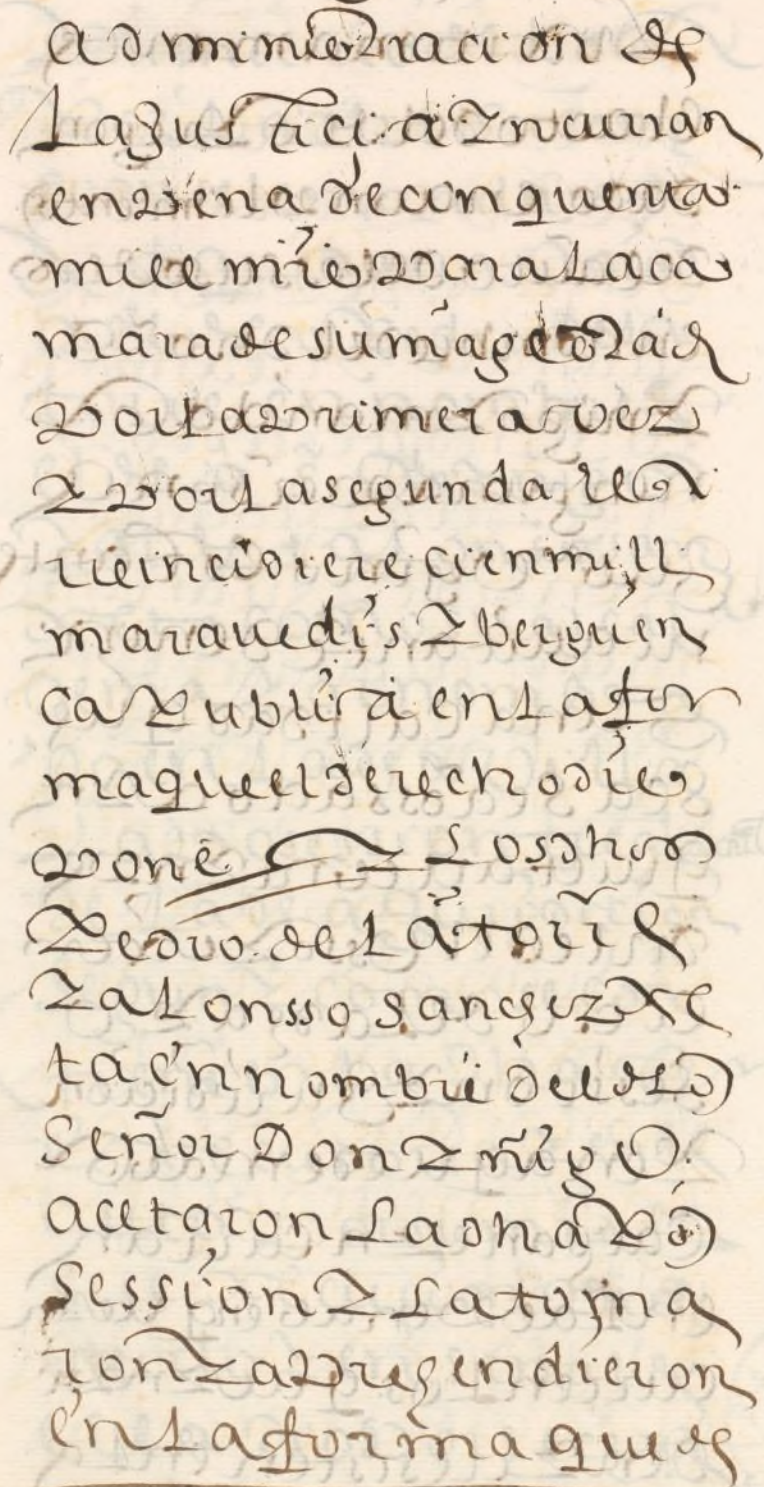 administracion de
la justicia Yncurran
en pena de cinquenta
mill mrs para la ca
mara de su magestad
por la primera vez
Y por la segunda que
reincidiere cien mill
maravedis Y berguen
ca publica en la for
ma que el derecho dis
pone Y los dhos
Pedro de la torre
Y alonsso sanchez
ta en nombre del dho
Señor Don Yñigo
acetaron la dha po
session Y la toma
ron Y aprehendieron
en la forma que de